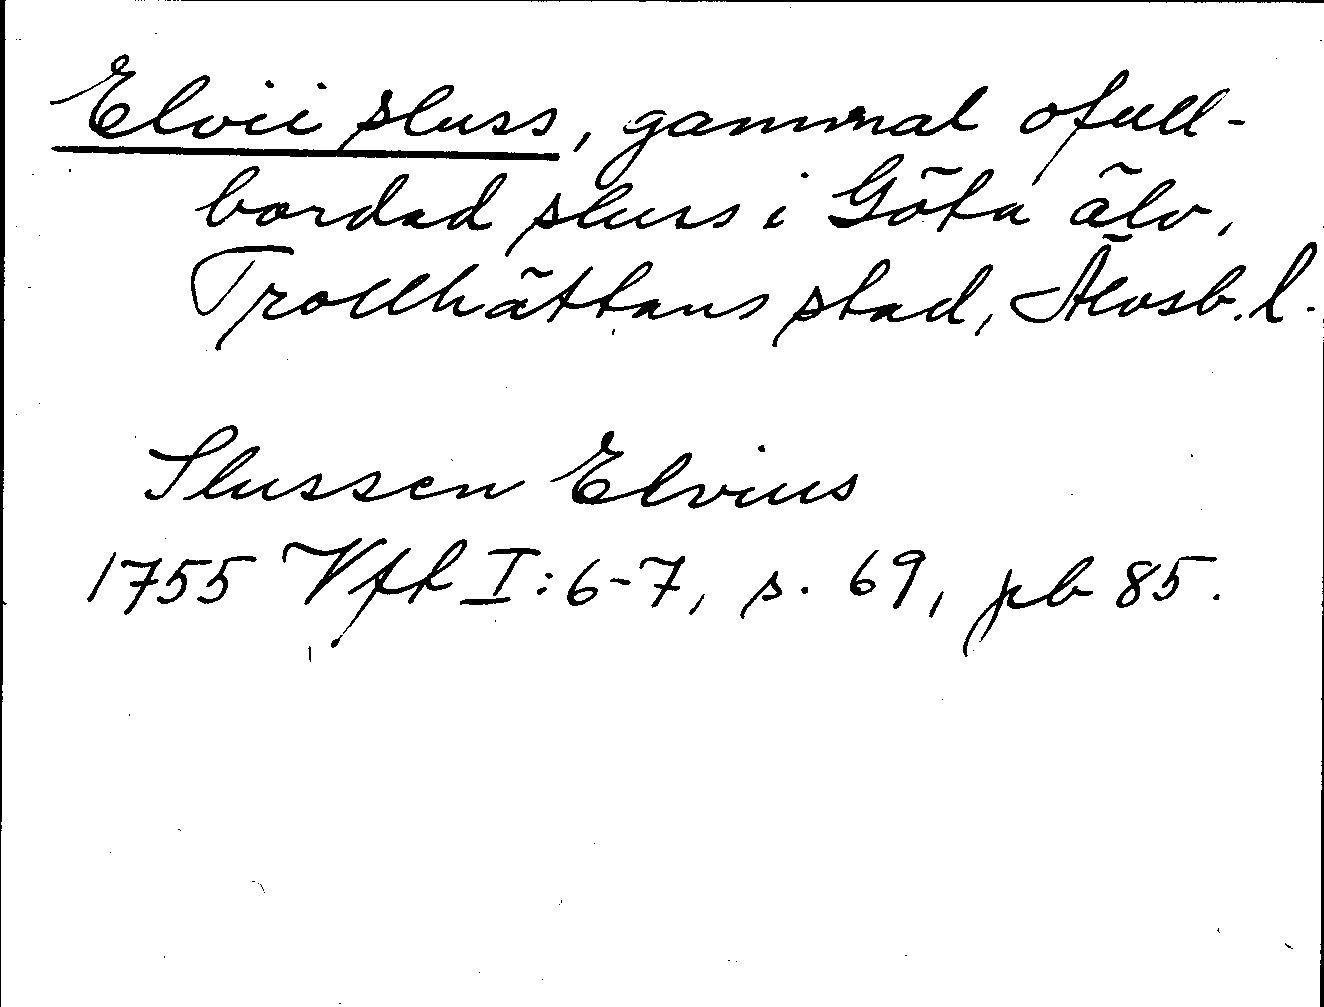 Elvii sluss, gammal ofull-
bordad sluss i Göta älv,
Trollhättans stad, Älvsb. l.
Slussen Elvius
1755 Vfk I:6-7, s. 69, pb 85.